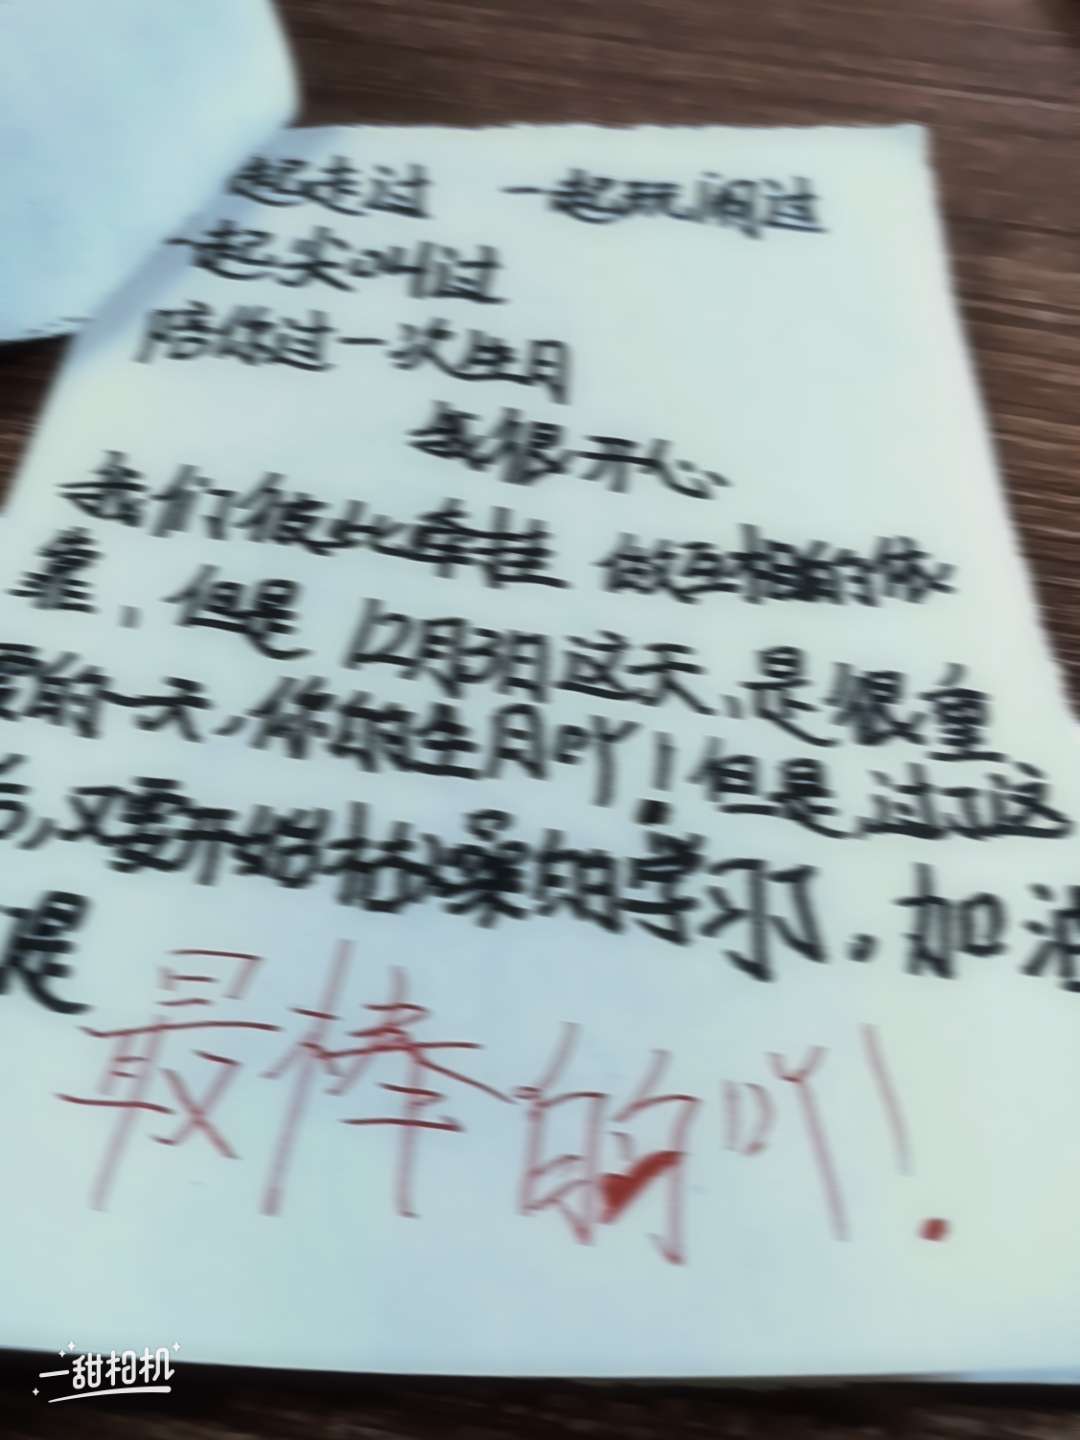 起走过 一起玩闹过
一起尖叫过
陪你过一次生日
我很开心
我们彼此牵挂 做互相的依
靠，但是 12月3日这天，是很重
要的一天，你的生日吖！但是，过了这
后，又要开始枯燥的学习了，加油
是
最棒的吖！
一甜相机